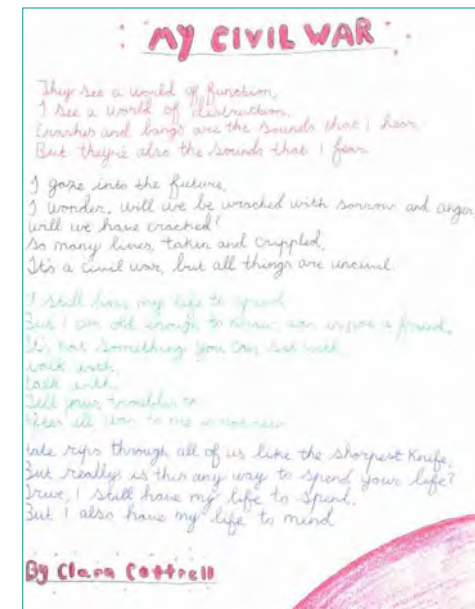 MY CIVIL WAR
They see a world of function,
I see a world of destruction.
Crashes and bangs are the sounds that I hear
But they're also the sounds that I fear
I gaze into the future,
I wonder, will we be wracked with sorrow and anger
will we have cracked?
So many lives, taken and crippled,
It's a civil war, but all things are uncivil.
I still have my life to spend
But I am old enough to know war is not a friend.
It's not something you can sit with,
walk with,
talk with,
Tell your troubles to
After all war to me is not new
Hate rips through all of us like the sharpest knife,
But really is this any way to spend your life?
True, I still have my life to spend.
But I also have my life to mend
By Clara Cottrell